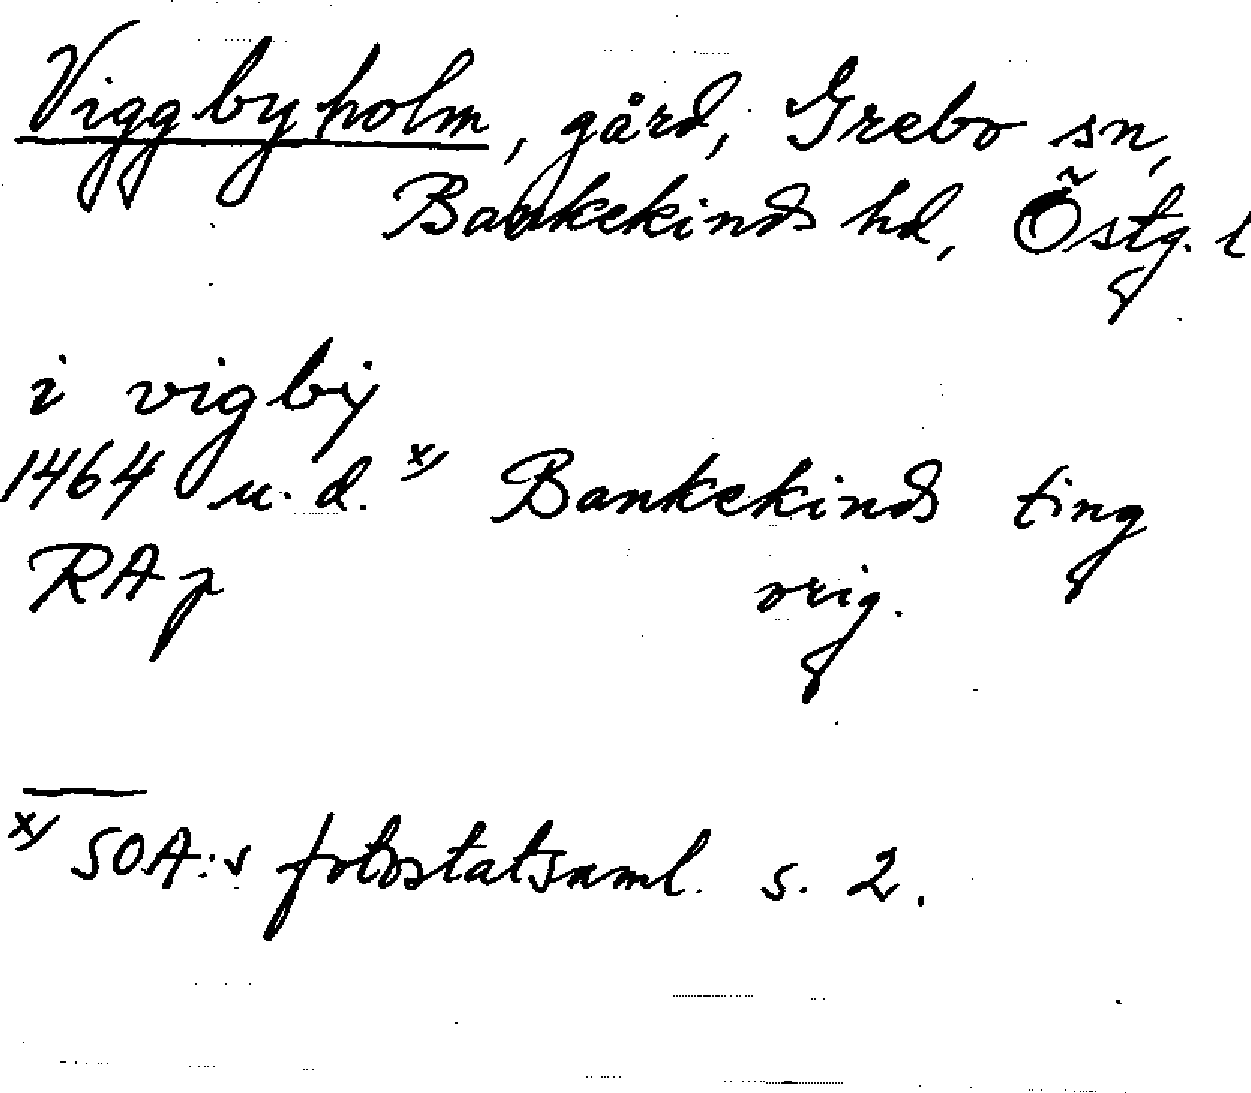 Viggbyholm, gård, Grebo sn,
Bankekinds hd, Östg. l
i vigbÿ
1464 u. d. x) Bankekinds ting
RAp orig.
x) SOA:s fotostatsaml. s. 2.